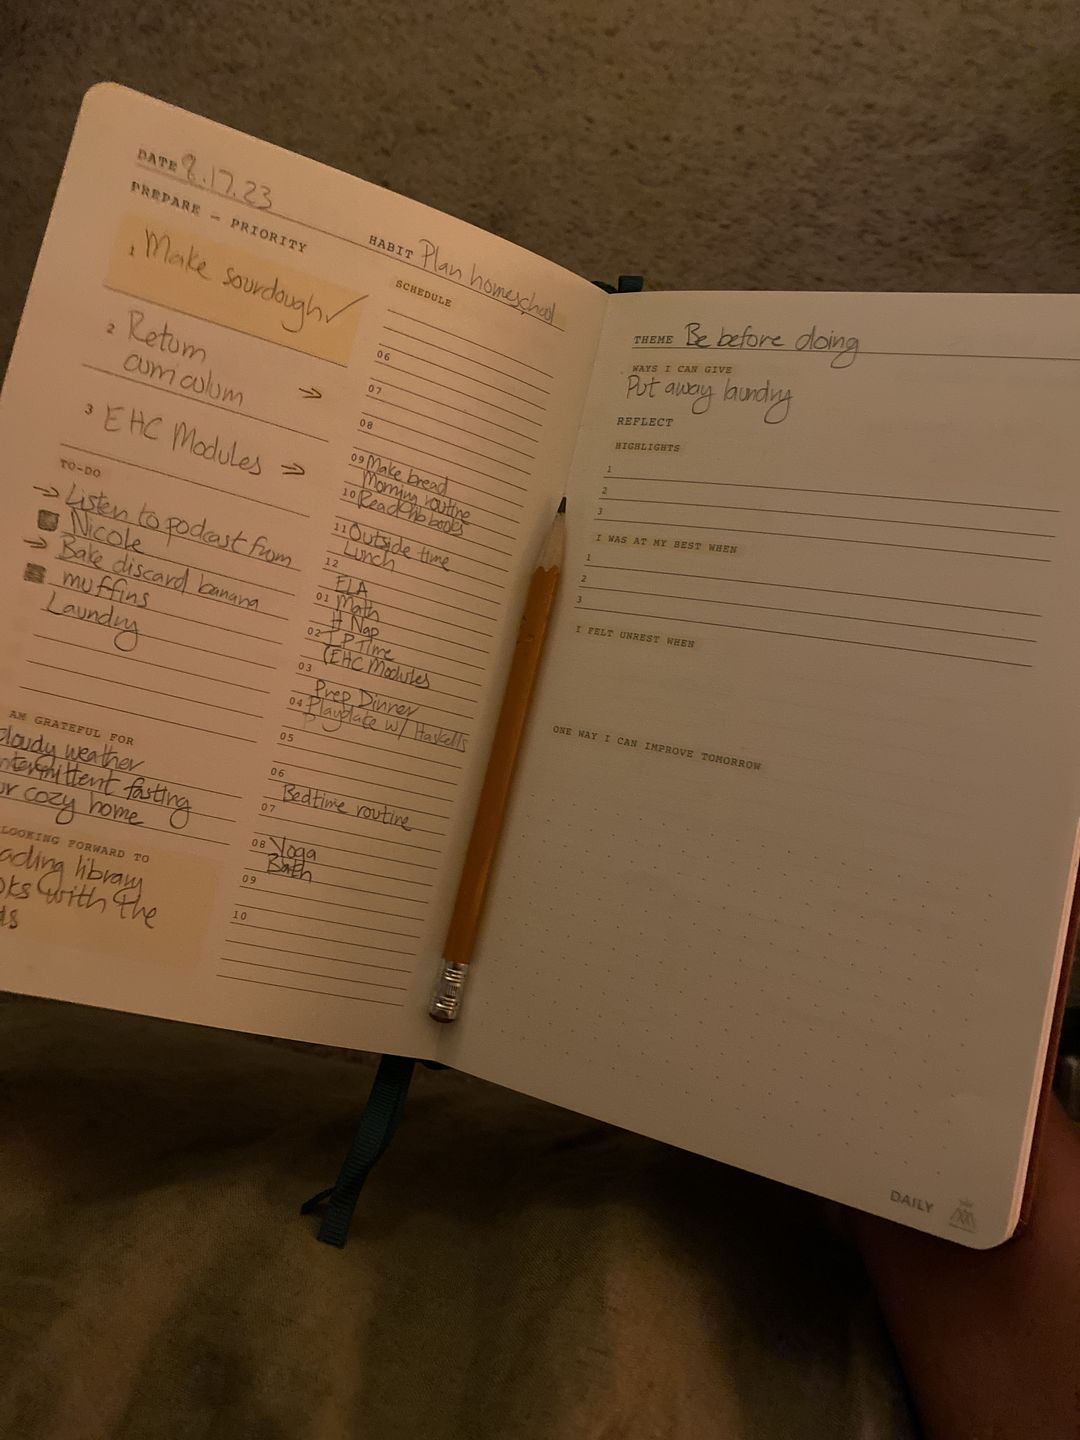 DATE 8.17.23
PREPARE – PRIORITY
1 Make sourdough ✓
2 Return
curriculum →
3 EHC Modules →
TO-DO
→ Listen to podcast from
Nicole
→ Bake discard banana
muffins
Laundry
AM GRATEFUL FOR
cloudy weather
intermittent fasting
ur cozy home
LOOKING FORWARD TO
ading library
oks with the
ds
HABIT Plan homeschool
SCHEDULE
06
07
08
09 Make bread
Morning routine
10 Read lib books
11 Outside time
Lunch
12
ELA
01 Math
H Nap
02 I P Time
(EHC Modules
03
Prep Dinner
04 Playdate w/ Haskells
05
06
Bedtime routine
07
08 Yoga
Bath
09
10
THEME Be before doing
WAYS I CAN GIVE
Put away laundry
REFLECT
HIGHLIGHTS
1
2
3
I WAS AT MY BEST WHEN
1
2
3
I FELT UNREST WHEN
ONE WAY I CAN IMPROVE TOMORROW
DAILY